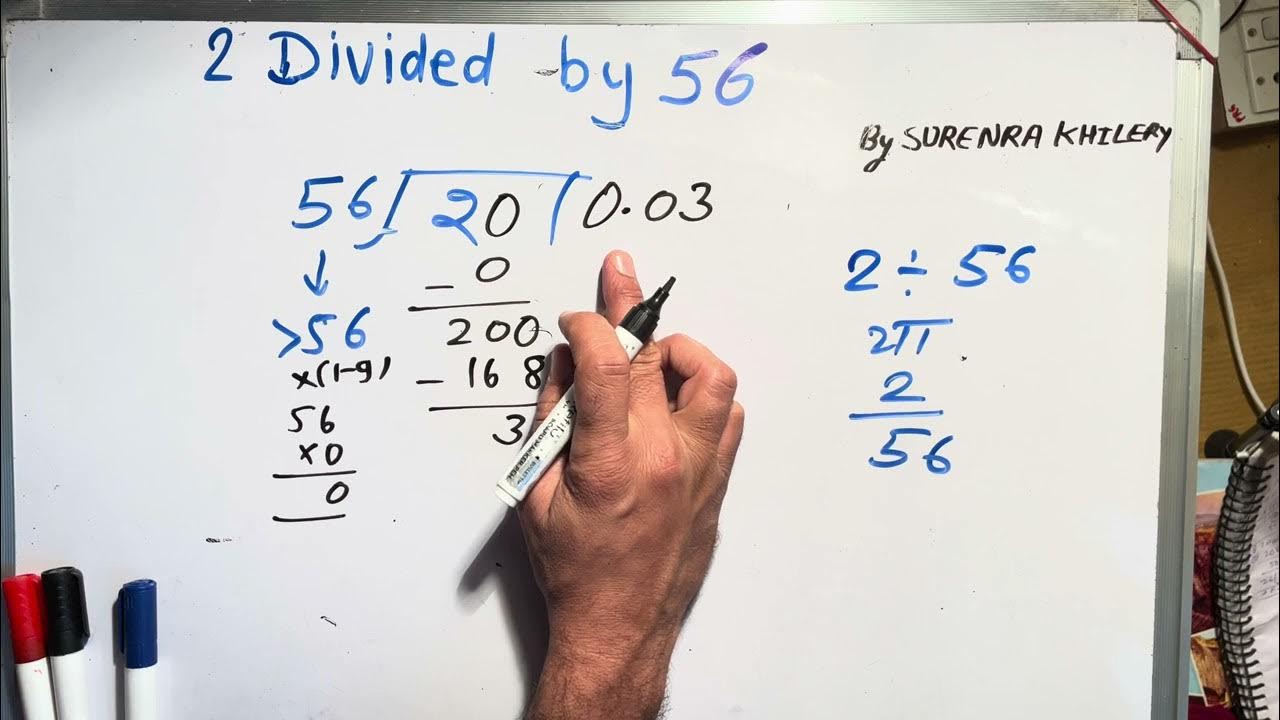 2 Divided by 56
By SURENRA KHILERY
56 20 0.03
- 0
200
- 168
3
>56
x(1-9)
56
x0
0
2 ÷ 56
2
56